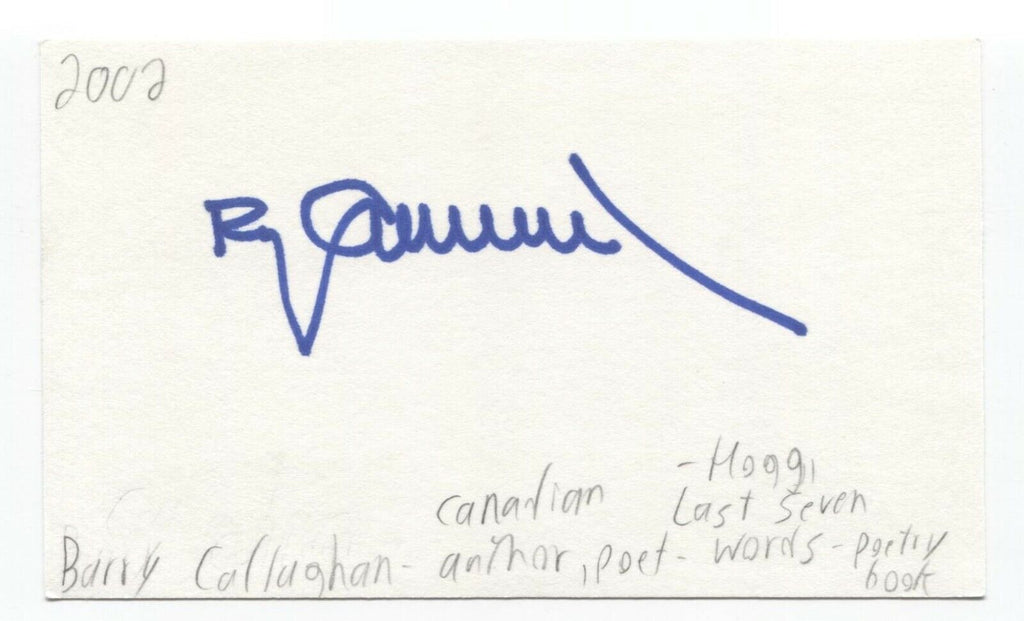 2002
- Hogg,
canadian Last seven
Barry Callaghan - author, poet - words - poetry
book